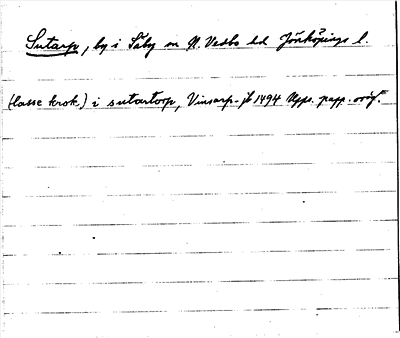 Sutarp, by i Säby sn N. Vedbo hd Jönköpings l.
(lasse krok) i sutartorp, Vinsarp-jb 1494 Upps. papp. orig.